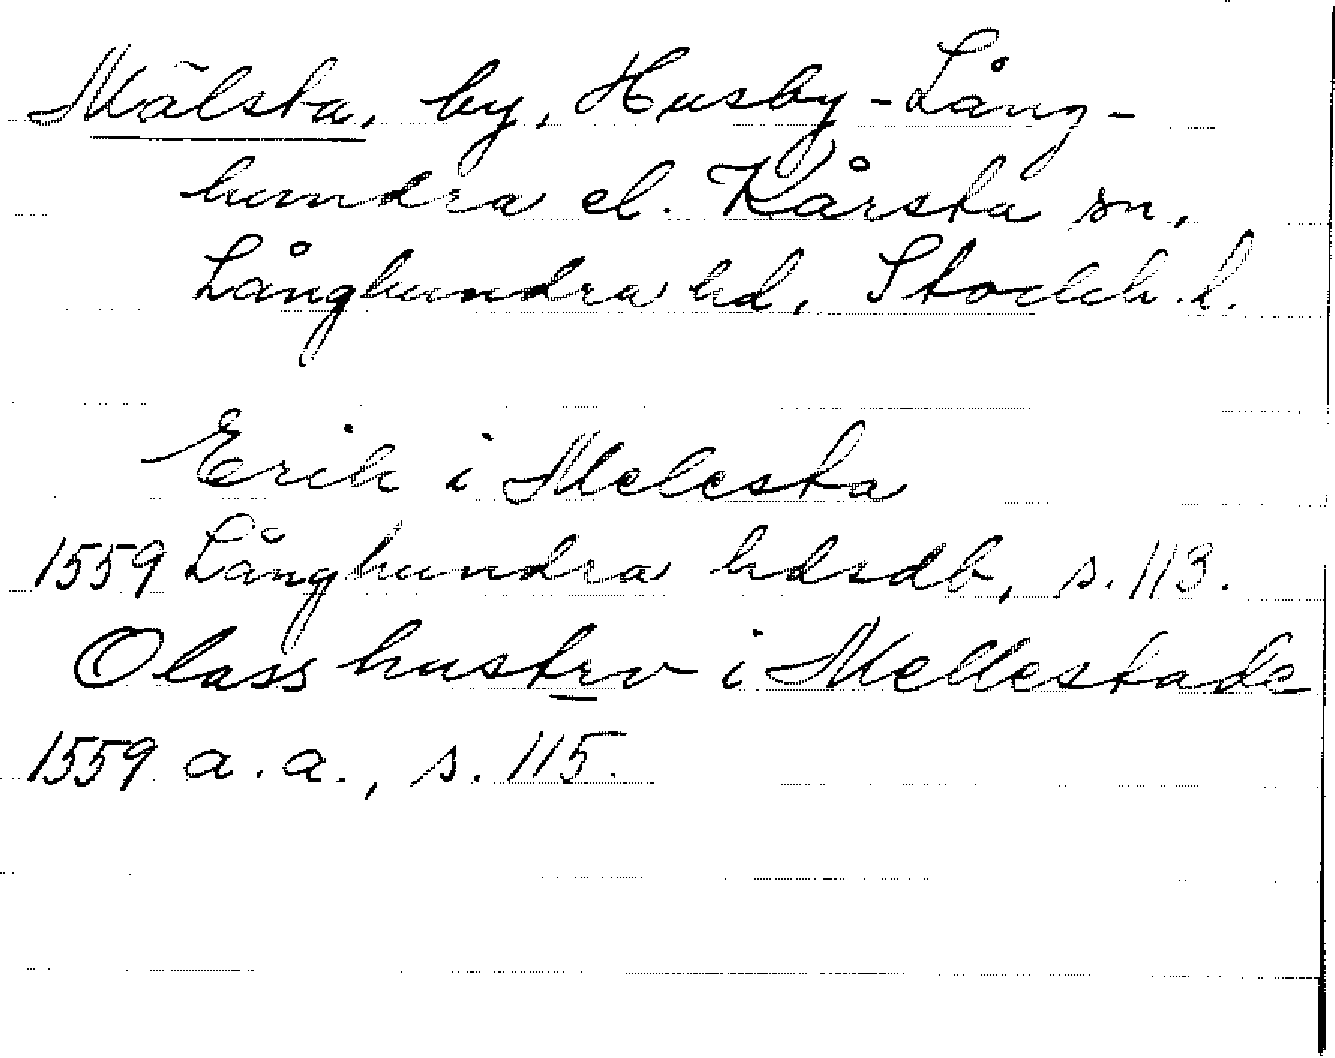 Mälsta, by, Husby-Lång-
hundra el. Kårsta sn,
Långhundra hd, Stockh. l.
Erik i Melesta
1559 Långhundra hdsdb, s. 113.
Olass hustrv i Mellestade
1559 a.a., s. 115.